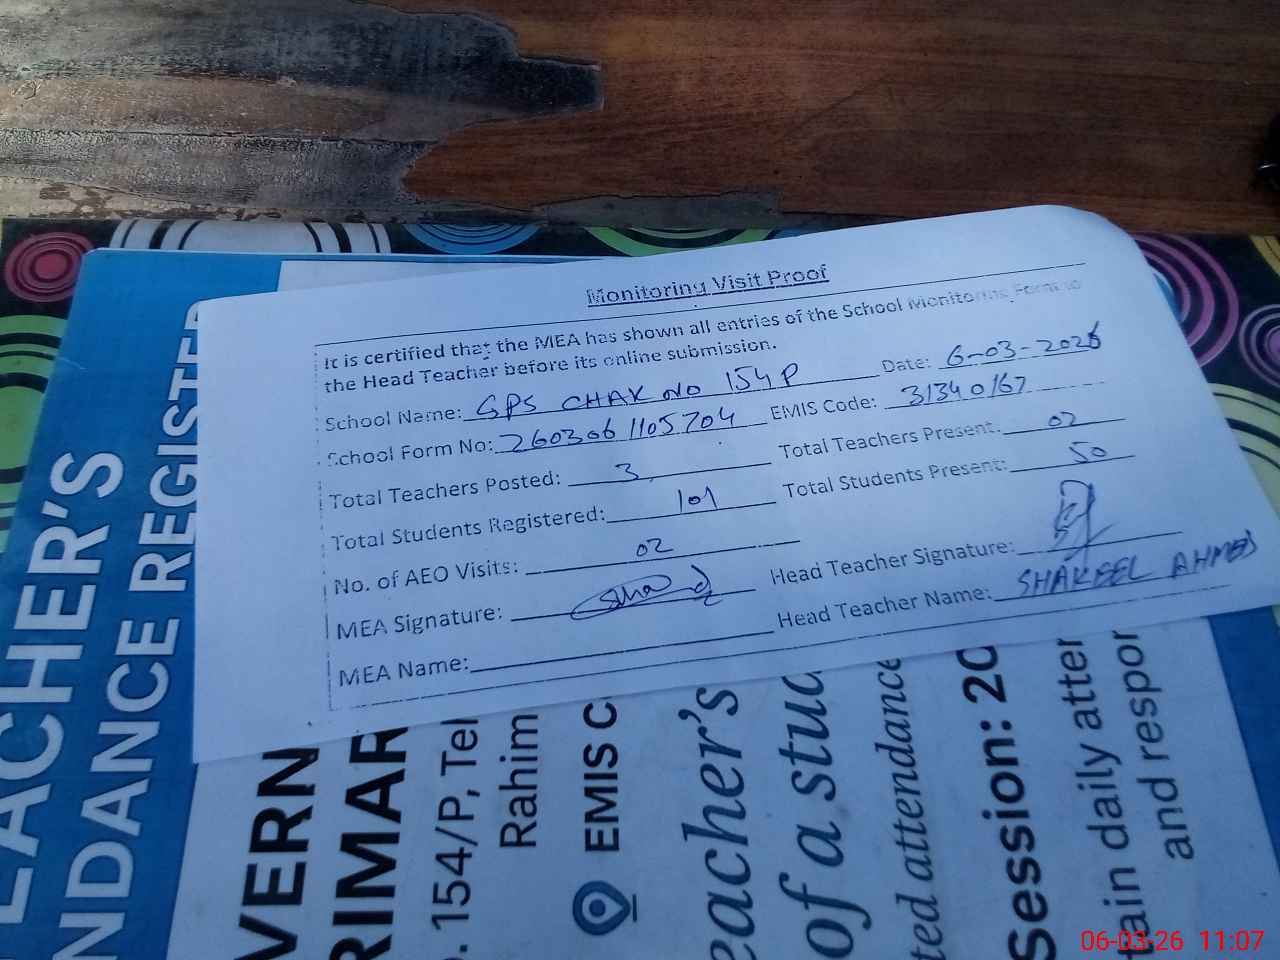 Monitoring Visit Proof
It is certified that the MEA has shown all entries of the School Monitoring Form to
the Head Teacher before its online submission.
School Name: GPS CHAK NO 154 P Date: 6-03-2026
School Form No: 2603061105704 EMIS Code: 31340167
Total Teachers Posted: 3 Total Teachers Present: 02
Total Students Registered: 101 Total Students Present: 50
No. of AEO Visits: 02
MEA Signature: Head Teacher Signature:
MEA Name: Head Teacher Name: SHAKEEL AHMED
EACHER'S
NDANCE REGISTER
VERN
RIMAR
. 154/P, Teh
Rahim
EMIS C
eacher's
of a stud
ted attendance
Session: 20
tain daily atten
and respon
06-03-26 11:07